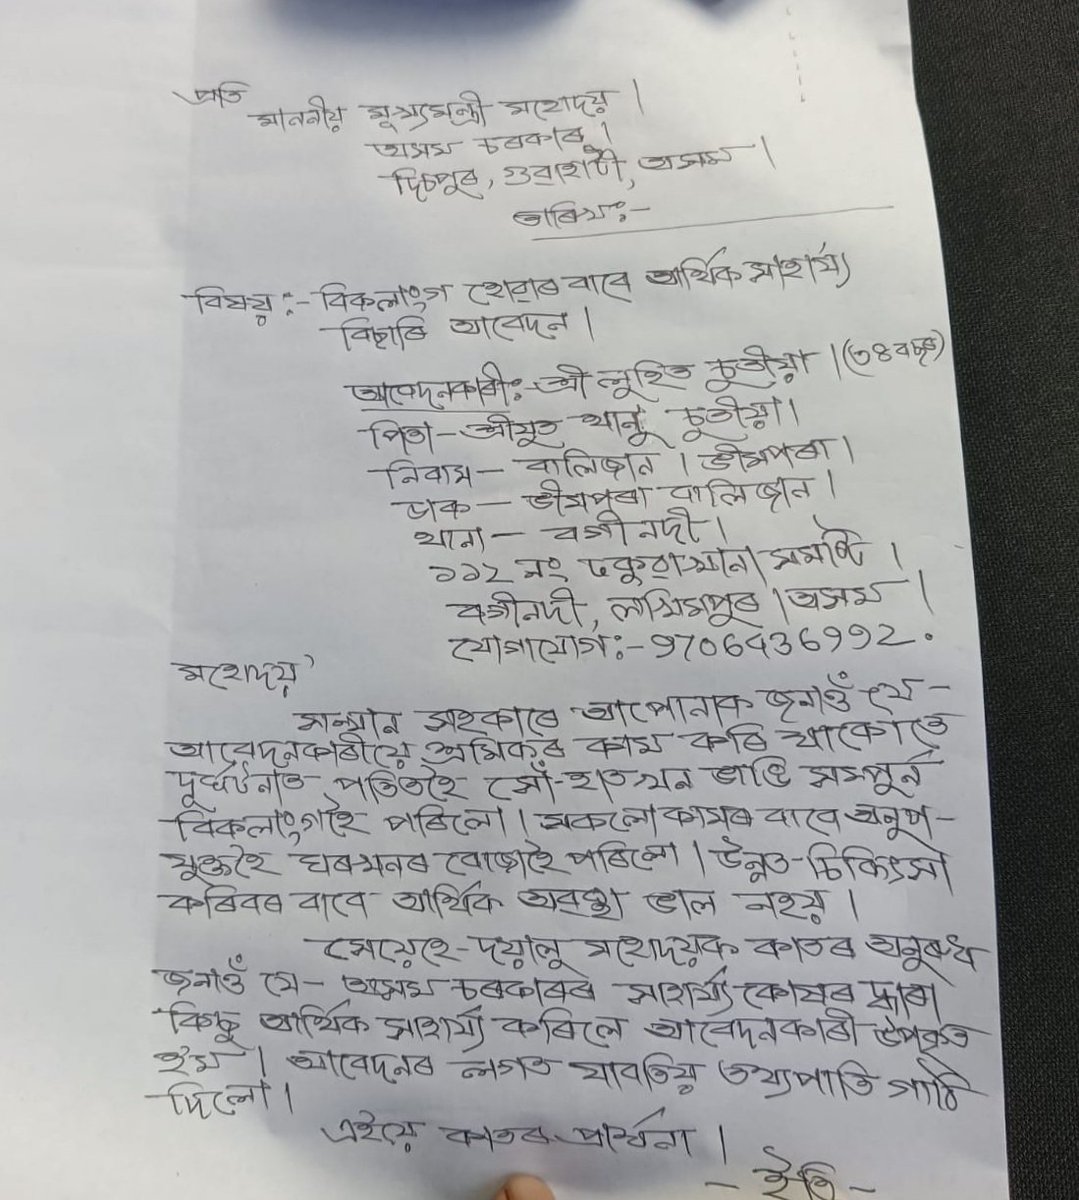 প্ৰতি
মাননীয় মূখ্যমন্ত্ৰী মহোদয় ।
অসম চৰকাৰ ।
দিচপুৰ, গুৱাহাটী, অসম ।
তাৰিখ:-
বিষয় :- বিকলাংগ হোৱাৰ বাবে আৰ্থিক সাহাৰ্য্য
বিচাৰি আবেদন ।
আবেদনকাৰী:- শ্ৰী লুহিত চুতীয়া । (৩৪ বছৰ)
পিতা – শ্ৰীযুত থানু চুতীয়া।
নিবাস – বালিজান । ভীমপৰা ।
ডাক – ভীমপৰা বালিজান ।
থানা – বগীনদী ।
১১২ নং ঢকুৱাখানা সমষ্টি ।
বগীনদী, লখিমপুৰ । অসম ।
যোগাযোগ:- 9706436992.
মহোদয়,
সন্মান সহকাৰে আপোনাক জনাওঁ যে –
আবেদনকাৰীয়ে শ্ৰমিকৰ কাম কৰি থাকোতে
দূৰ্ঘটনাত পতিতহৈ সোঁ-হাতখন ভাঙি সম্পূৰ্ন
বিকলাংগহৈ পৰিলো । সকলো কামৰ বাবে অনুপ–
যুক্তহৈ ঘৰখনৰ বোজাহৈ পৰিলো । উন্নত-চিকিৎসা
কৰিবৰ বাবে আৰ্থিক অৱস্থা ভাল নহয় ।
সেয়েহে-দয়ালু মহোদয়ক কাতৰ অনুৰুধ
জনাওঁ যে – অসম চৰকাৰৰ সাহাৰ্য্য কোষৰ দ্বাৰা
কিছু আৰ্থিক সাহাৰ্য্য কৰিলে আবেদনকাৰী উপকৃত
হ'ম । আবেদনৰ লগত যাবতিয় তথ্যপাতি গাঠি
দিলো ।
এইয়ে কাতৰ প্ৰাৰ্থনা ।
– ইতি –